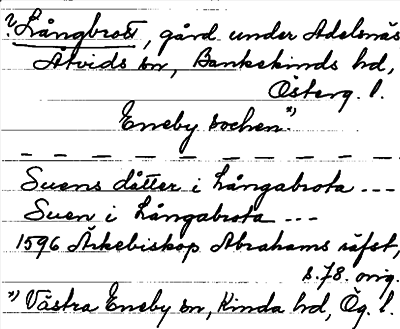 ?Långbrott, gård under Adelsnäs
Åtvids sn, Bankekinds hd,
Österg. l.
Eneby socken *)
Suens dåtter i Långabrota ---
Suen i Långabrota ---
1596 Ärkebiskop Abrahams räfst,
s. 78. orig.
*) Västra Eneby sn, Kinda hd, Ög. l.